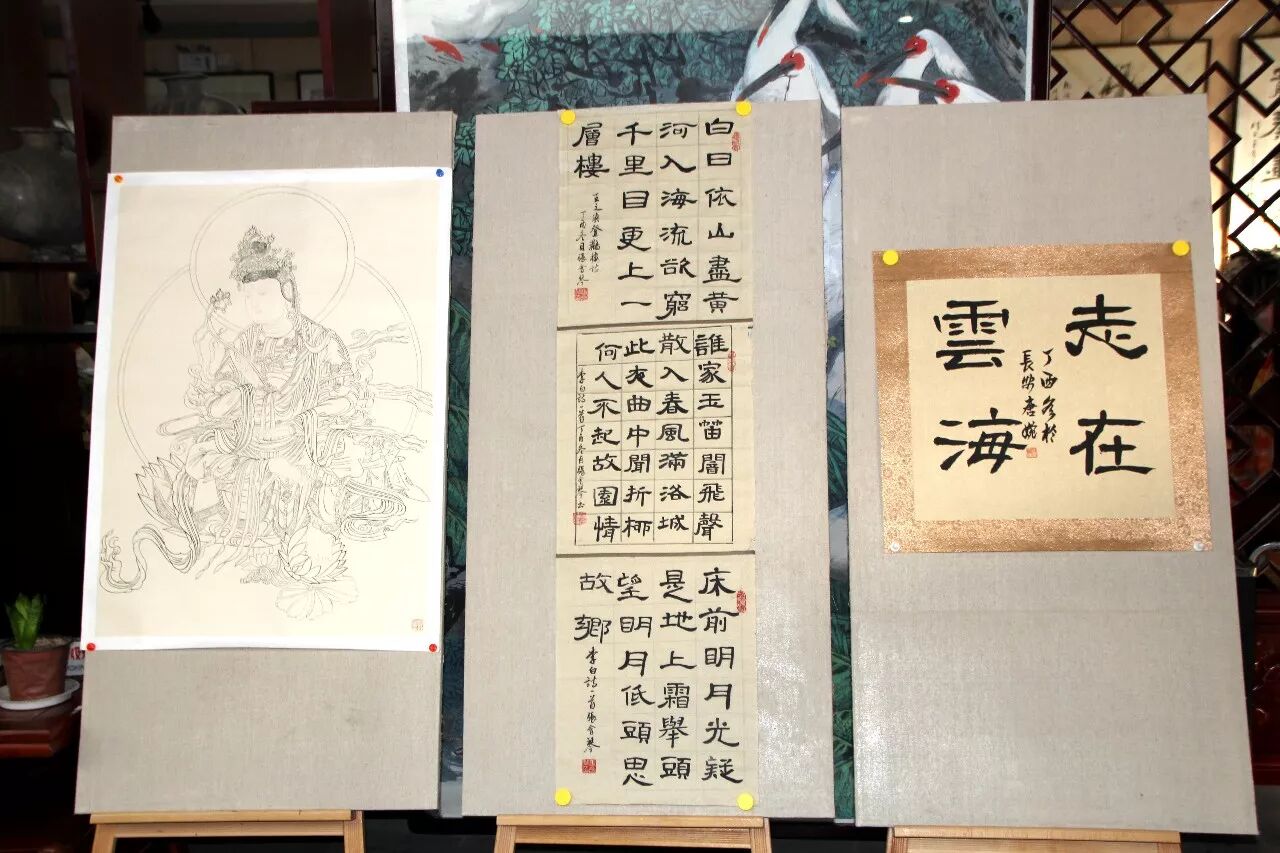 白日依山盡黃
河入海流欲窮
千里目更上一
層樓
王之渙登鸛樓詩
丁酉冬月
誰家玉笛闇飛聲
散入春風滿洛城
此夜曲中聞折柳
何人不起故園情
李白詩一首丁酉冬月
床前眀月光疑
是地上霜舉頭
望眀月低頭思
故鄉
李白詩一首
走在
雲海
丁酉冬於
長安唐婉